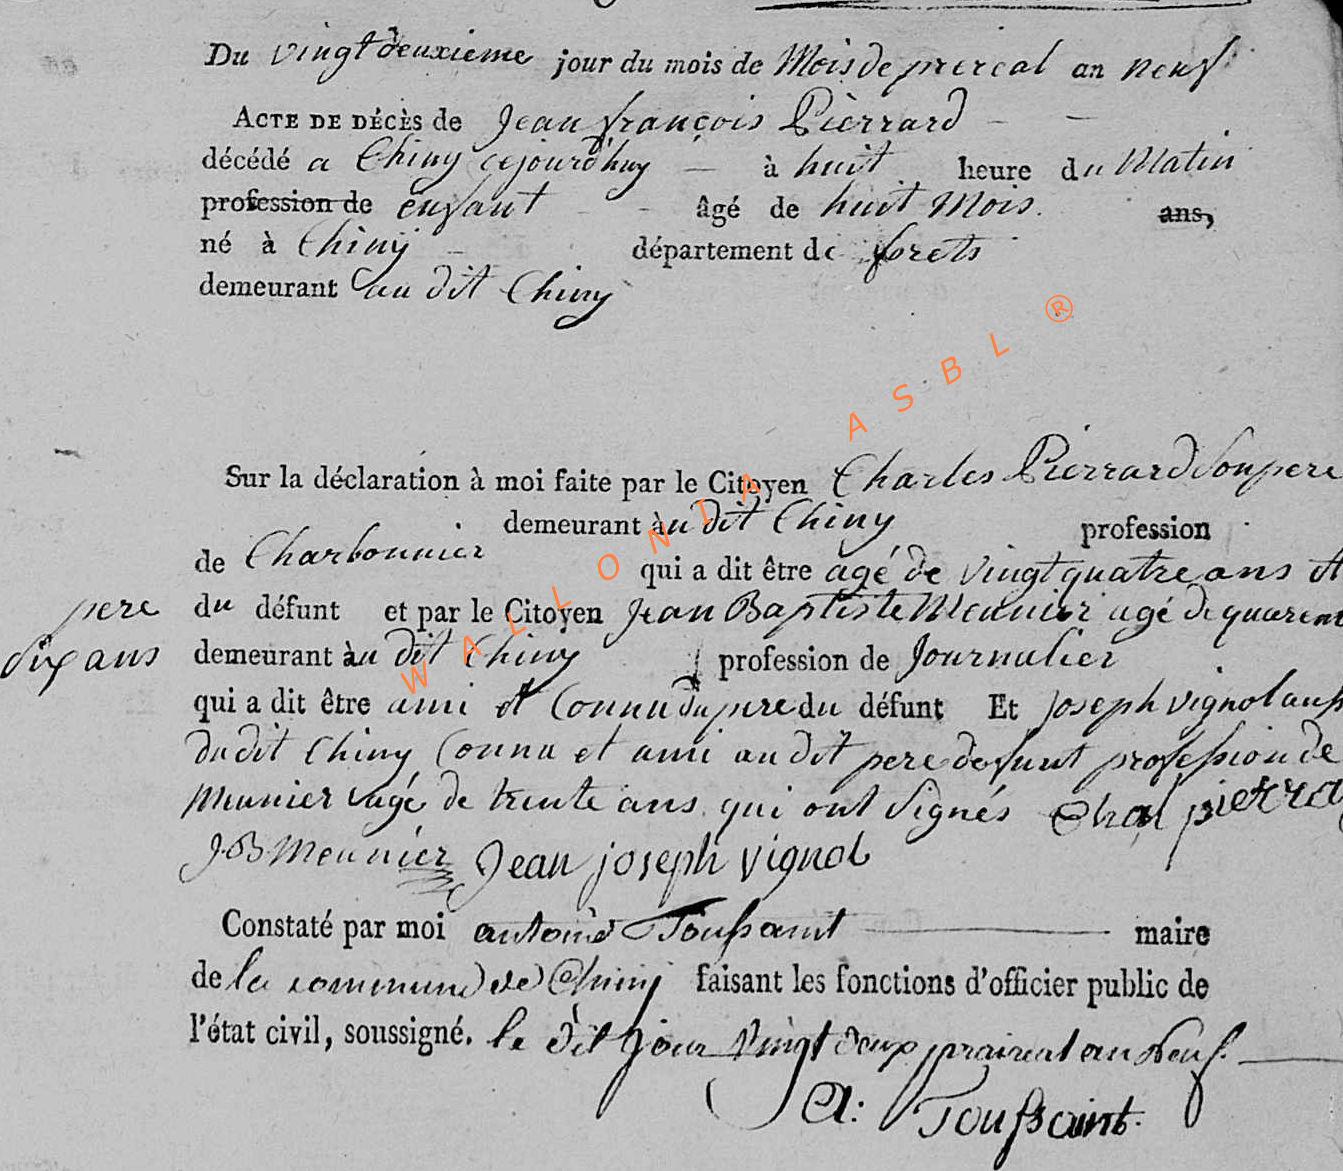 Du vingt deuxieme jour du mois de Mois de prereal an neuf
ACTE DE DÉCÈS de Jean françois Pierrard
décédé a Chiny cejourd'huy à huit heure du Matin
profession de enfant âgé de huit Mois ans,
né à Chiny département de forets
demeurant au dit Chiny
Sur la déclaration à moi faite par le Citoyen Charles Pierrard Son pere
demeurant au dit Chiny profession
de Charbonnier qui a dit être agé de vingt quatre ans et
pere du défunt et par le Citoyen Jean Baptiste Meunier agé de quarent
dix ans demeurant au dit Chiny profession de Journalier
qui a dit être ami et Connu du pere du défunt Et Joseph vignol
du dit Chiny Connu et ami au dit pere defunt profession de
Meunier agé de trente ans qui ont Signés Chal pierra
J B Meunier Jean joseph vignol
Constaté par moi antoine Toussaint maire
de la commune de Chiny faisant les fonctions d'officier public de
l'état civil, soussigné. le dit jour vingt deux praireal an neuf.
A: Toussaint.
WALLONIA ASBL ®